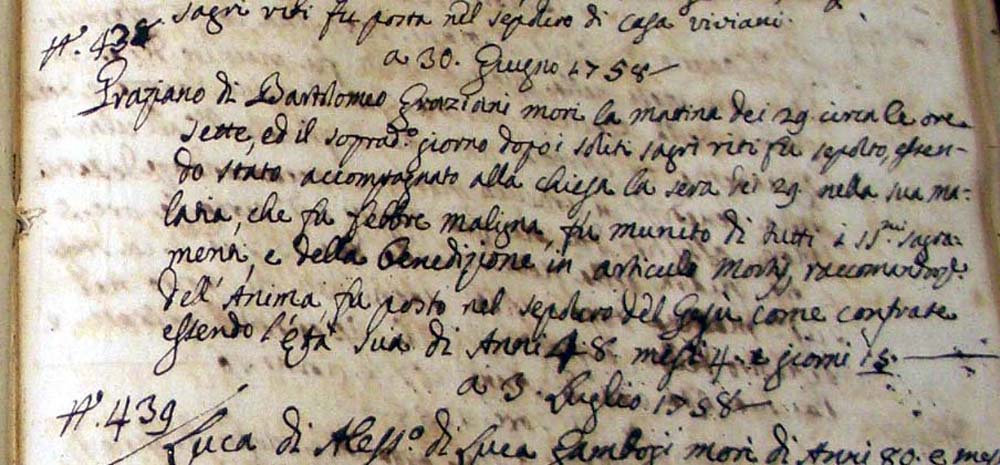 sagri riti fu posta nel sepolcro di casa viviani.
N.° 438
a 30. Giugno 1758
Graziano di Bartolomeo Graziani morì la matina dei 29. circa le ore
sette, ed il soprad.° giorno dopo i soliti sagri riti fu sepolto, essen-
do stato accompagnato alla chiesa la sera dei 29. nella sua ma-
latia, che fu febbre maligna, fu munito di tutti i SS.mi sagra-
menti, e della Benedizione in articulo Mortis, raccomandaz.e
dell'Anima, fu posto nel sepolcro del Gesù come confrate
essendo l'Età sua di Anni 48. mesi 4. e giorni 15.
a 3. Luglio 1758
N.° 439
Luca di Aless.° di Luca Gambogi morì di Anni 80. e mesi